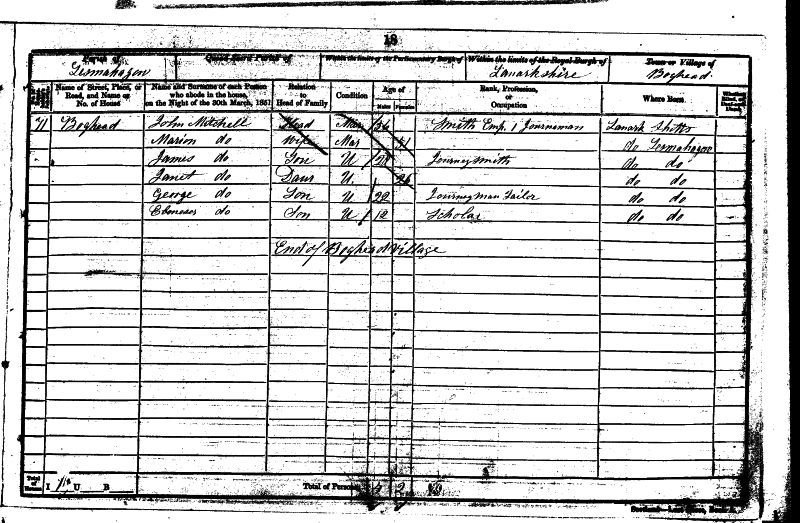 18
Parish of Quoad Sacra Parish of Within the limits of the Parliamentary Burgh of Within the limits of the Royal Burgh of Town or Village of
Lesmahagow Lanarkshire Boghead
Name of Street, Place, or Road, and Name or No. of House
Name and Surname of each Person who abode in the house, on the Night of the 30th March, 1851
Relation to Head of Family
Condition
Age of
Males Females
Rank, Profession, or Occupation
Where Born
71 Boghead John Mitchell Head Mar Smith Emp. 1 Journeman Lanark Shotts
Marion do Wife Mar do Lesmahagow
James do Son U Journey Smith do do
Janet do Daur U do do
George do Son U 22 Journeyman Tailor do do
Ebenezer do Son U 12 Scholar do do
End of Boghead Village
I U B Total of Persons